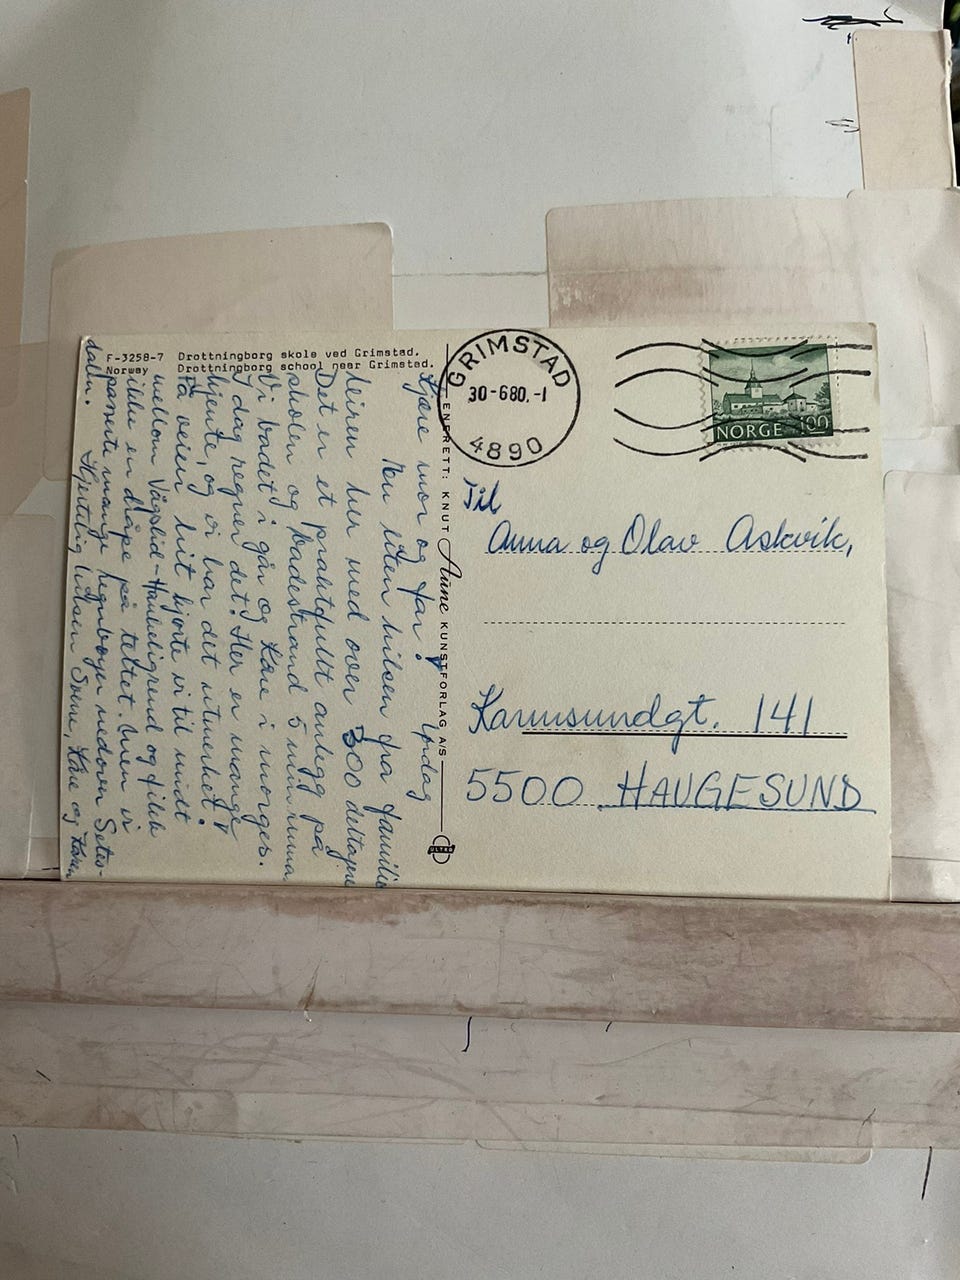 F-3258-7 Drottningborg skole ved Grimstad.
Norway Drottningborg school near Grimstad.
Kjære mor og far! Lørdag
Nu liten hilsen fra familie
leiren her med over 300 deltagere
Det er et praktfullt anlegg på
skolen og badestrand 5 min. unna
Vi badet i går og Kåre i morges.
I dag regner det! Her er mange
kjente, og vi har det utmerket!
På veien hit kjørte vi til midt
mellom Vågslid-Haukeligrend og fikk
ikke en dråpe på teltet. Men vi
passerte mange regnbøyer nedover Setes-
dalen.
Hjertelig hilsen Svein, Kåre og
ENERETT: KNUT Aune KUNSTFORLAG A/S
ULTRA
GRIMSTAD
30-680.-1
4890
NORGE 100
Til
Anna og Olav Askvik,
Karmsundgt. 141
5500 HAUGESUND